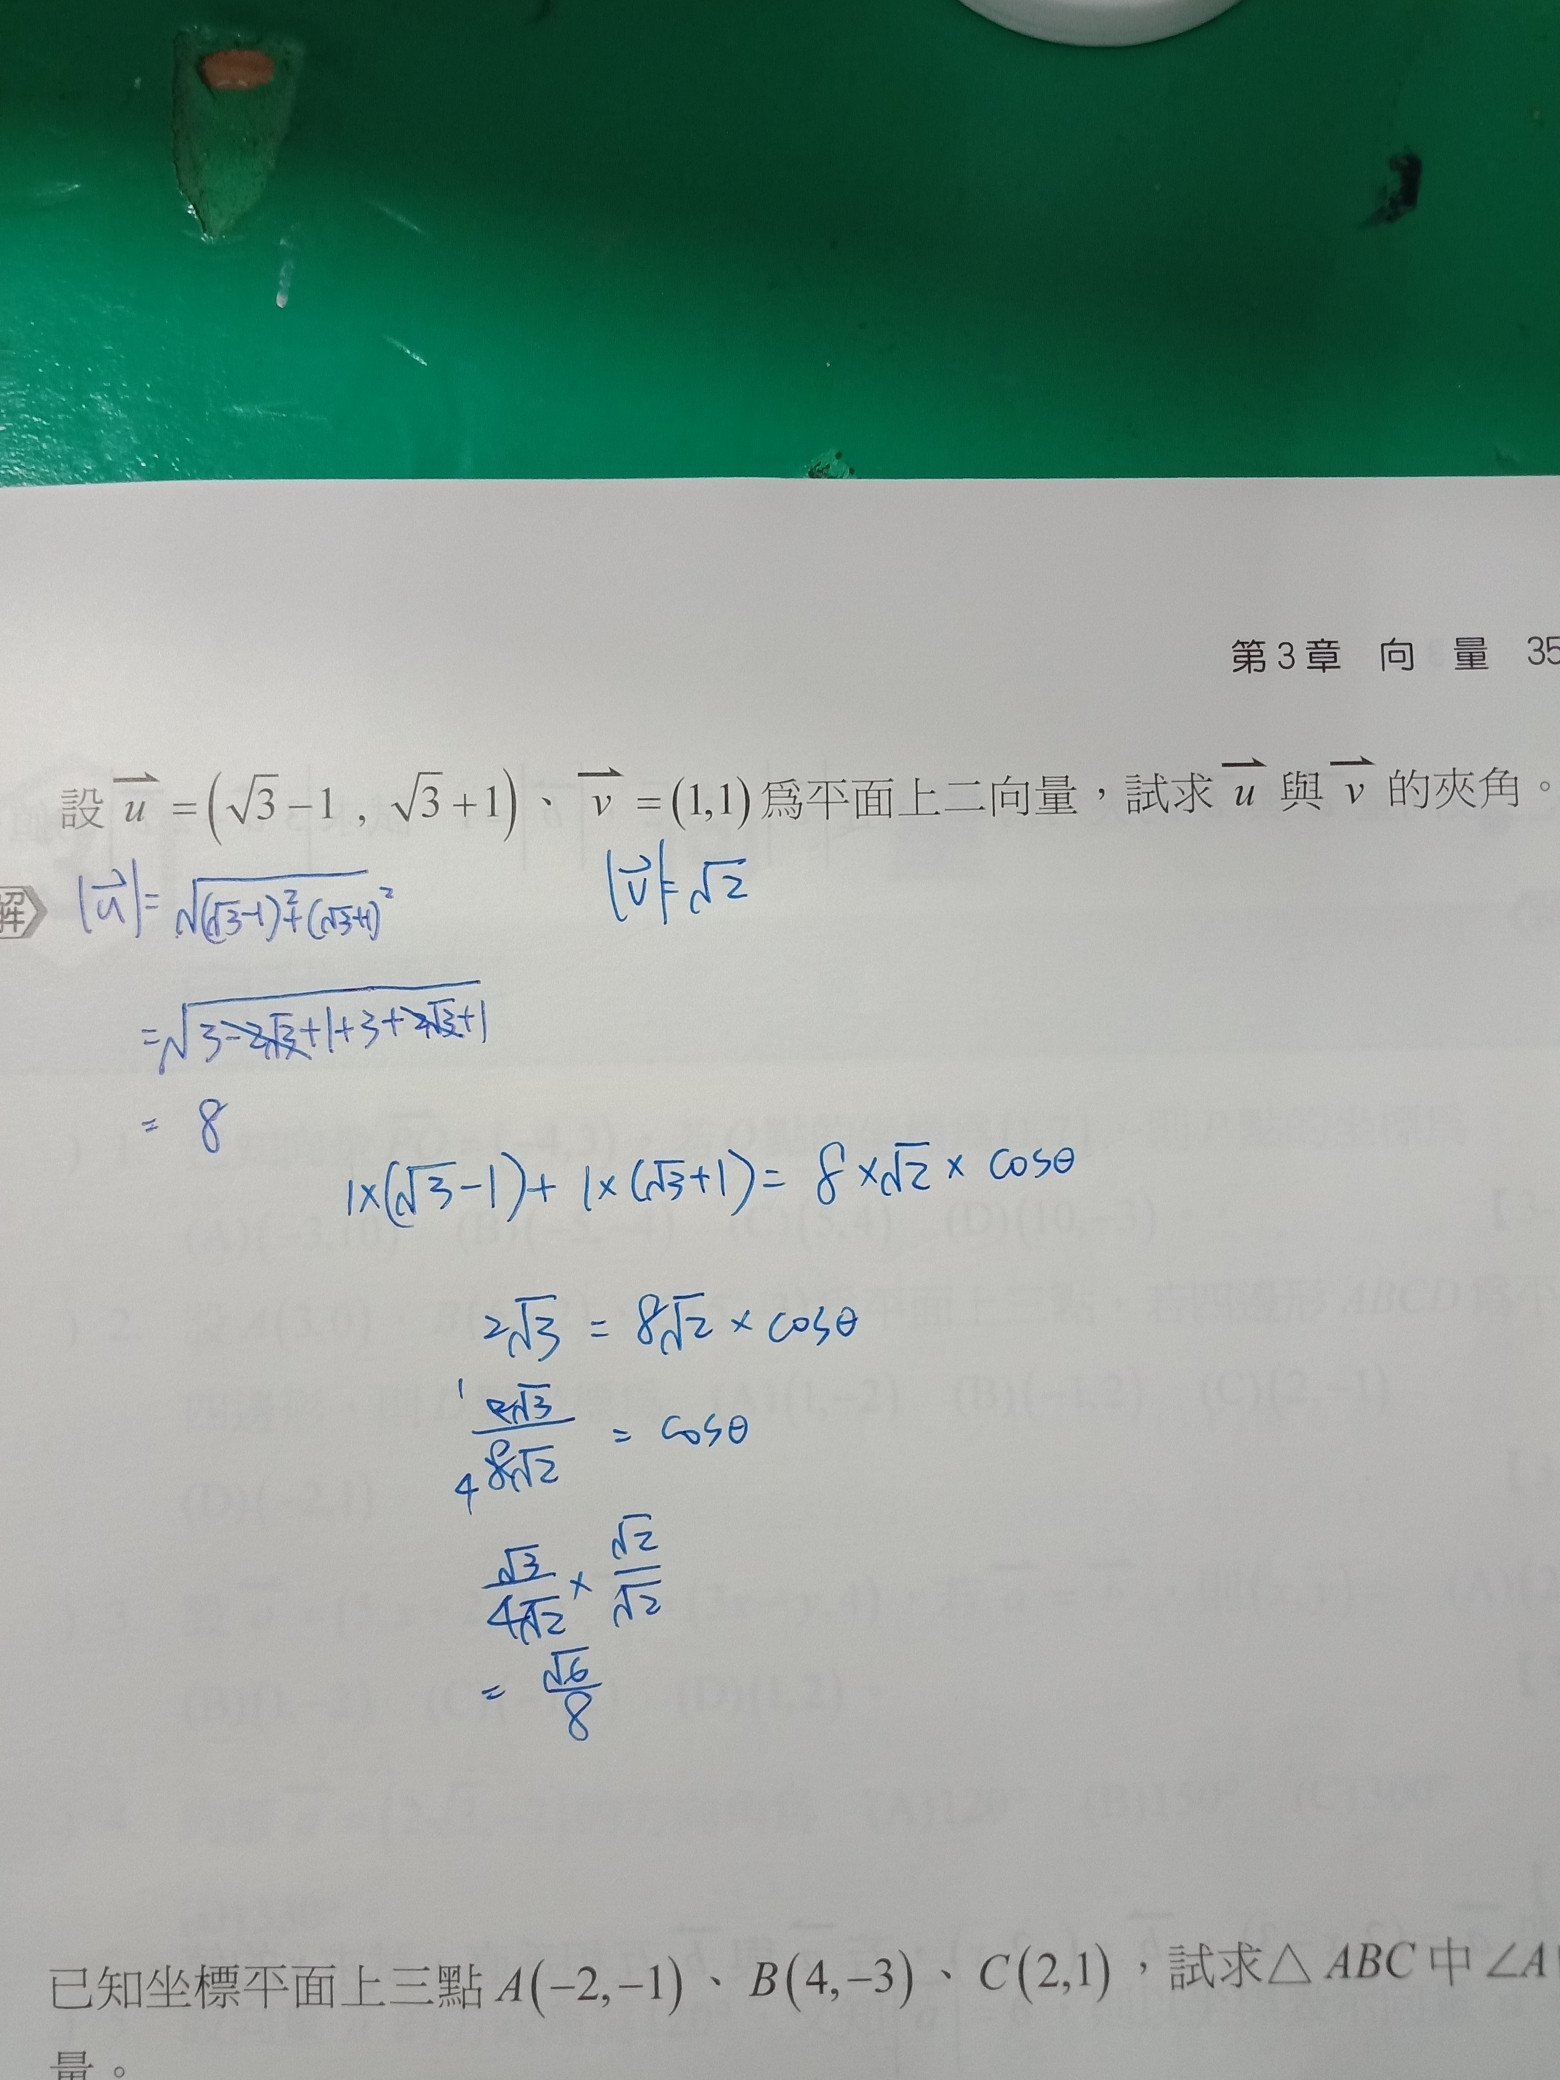 第3章 向 量 35
設 $\overrightarrow{u}=(\sqrt{3}-1 , \sqrt{3}+1)$、$\overrightarrow{v}=(1,1)$ 為平面上二向量，試求 $\overrightarrow{u}$ 與 $\overrightarrow{v}$ 的夾角。
解 $|\overrightarrow{u}|=\sqrt{(\sqrt{3}-1)^2+(\sqrt{3}+1)^2}$ $|\overrightarrow{v}|=\sqrt{2}$
$=\sqrt{3-2\sqrt{3}+1+3+2\sqrt{3}+1}$
$= 8$
$1×(\sqrt{3}-1)+1×(\sqrt{3}+1)=8×\sqrt{2}×cosθ$
$2\sqrt{3}=8\sqrt{2}×cosθ$
$\frac{2\sqrt{3}}{8\sqrt{2}}=cosθ$ 1 4
$\frac{\sqrt{3}}{4\sqrt{2}}×\frac{\sqrt{2}}{\sqrt{2}}$
$=\frac{\sqrt{6}}{8}$
已知坐標平面上三點 A(−2,−1)、B(4,−3)、C(2,1)，試求△ABC 中∠A
量。